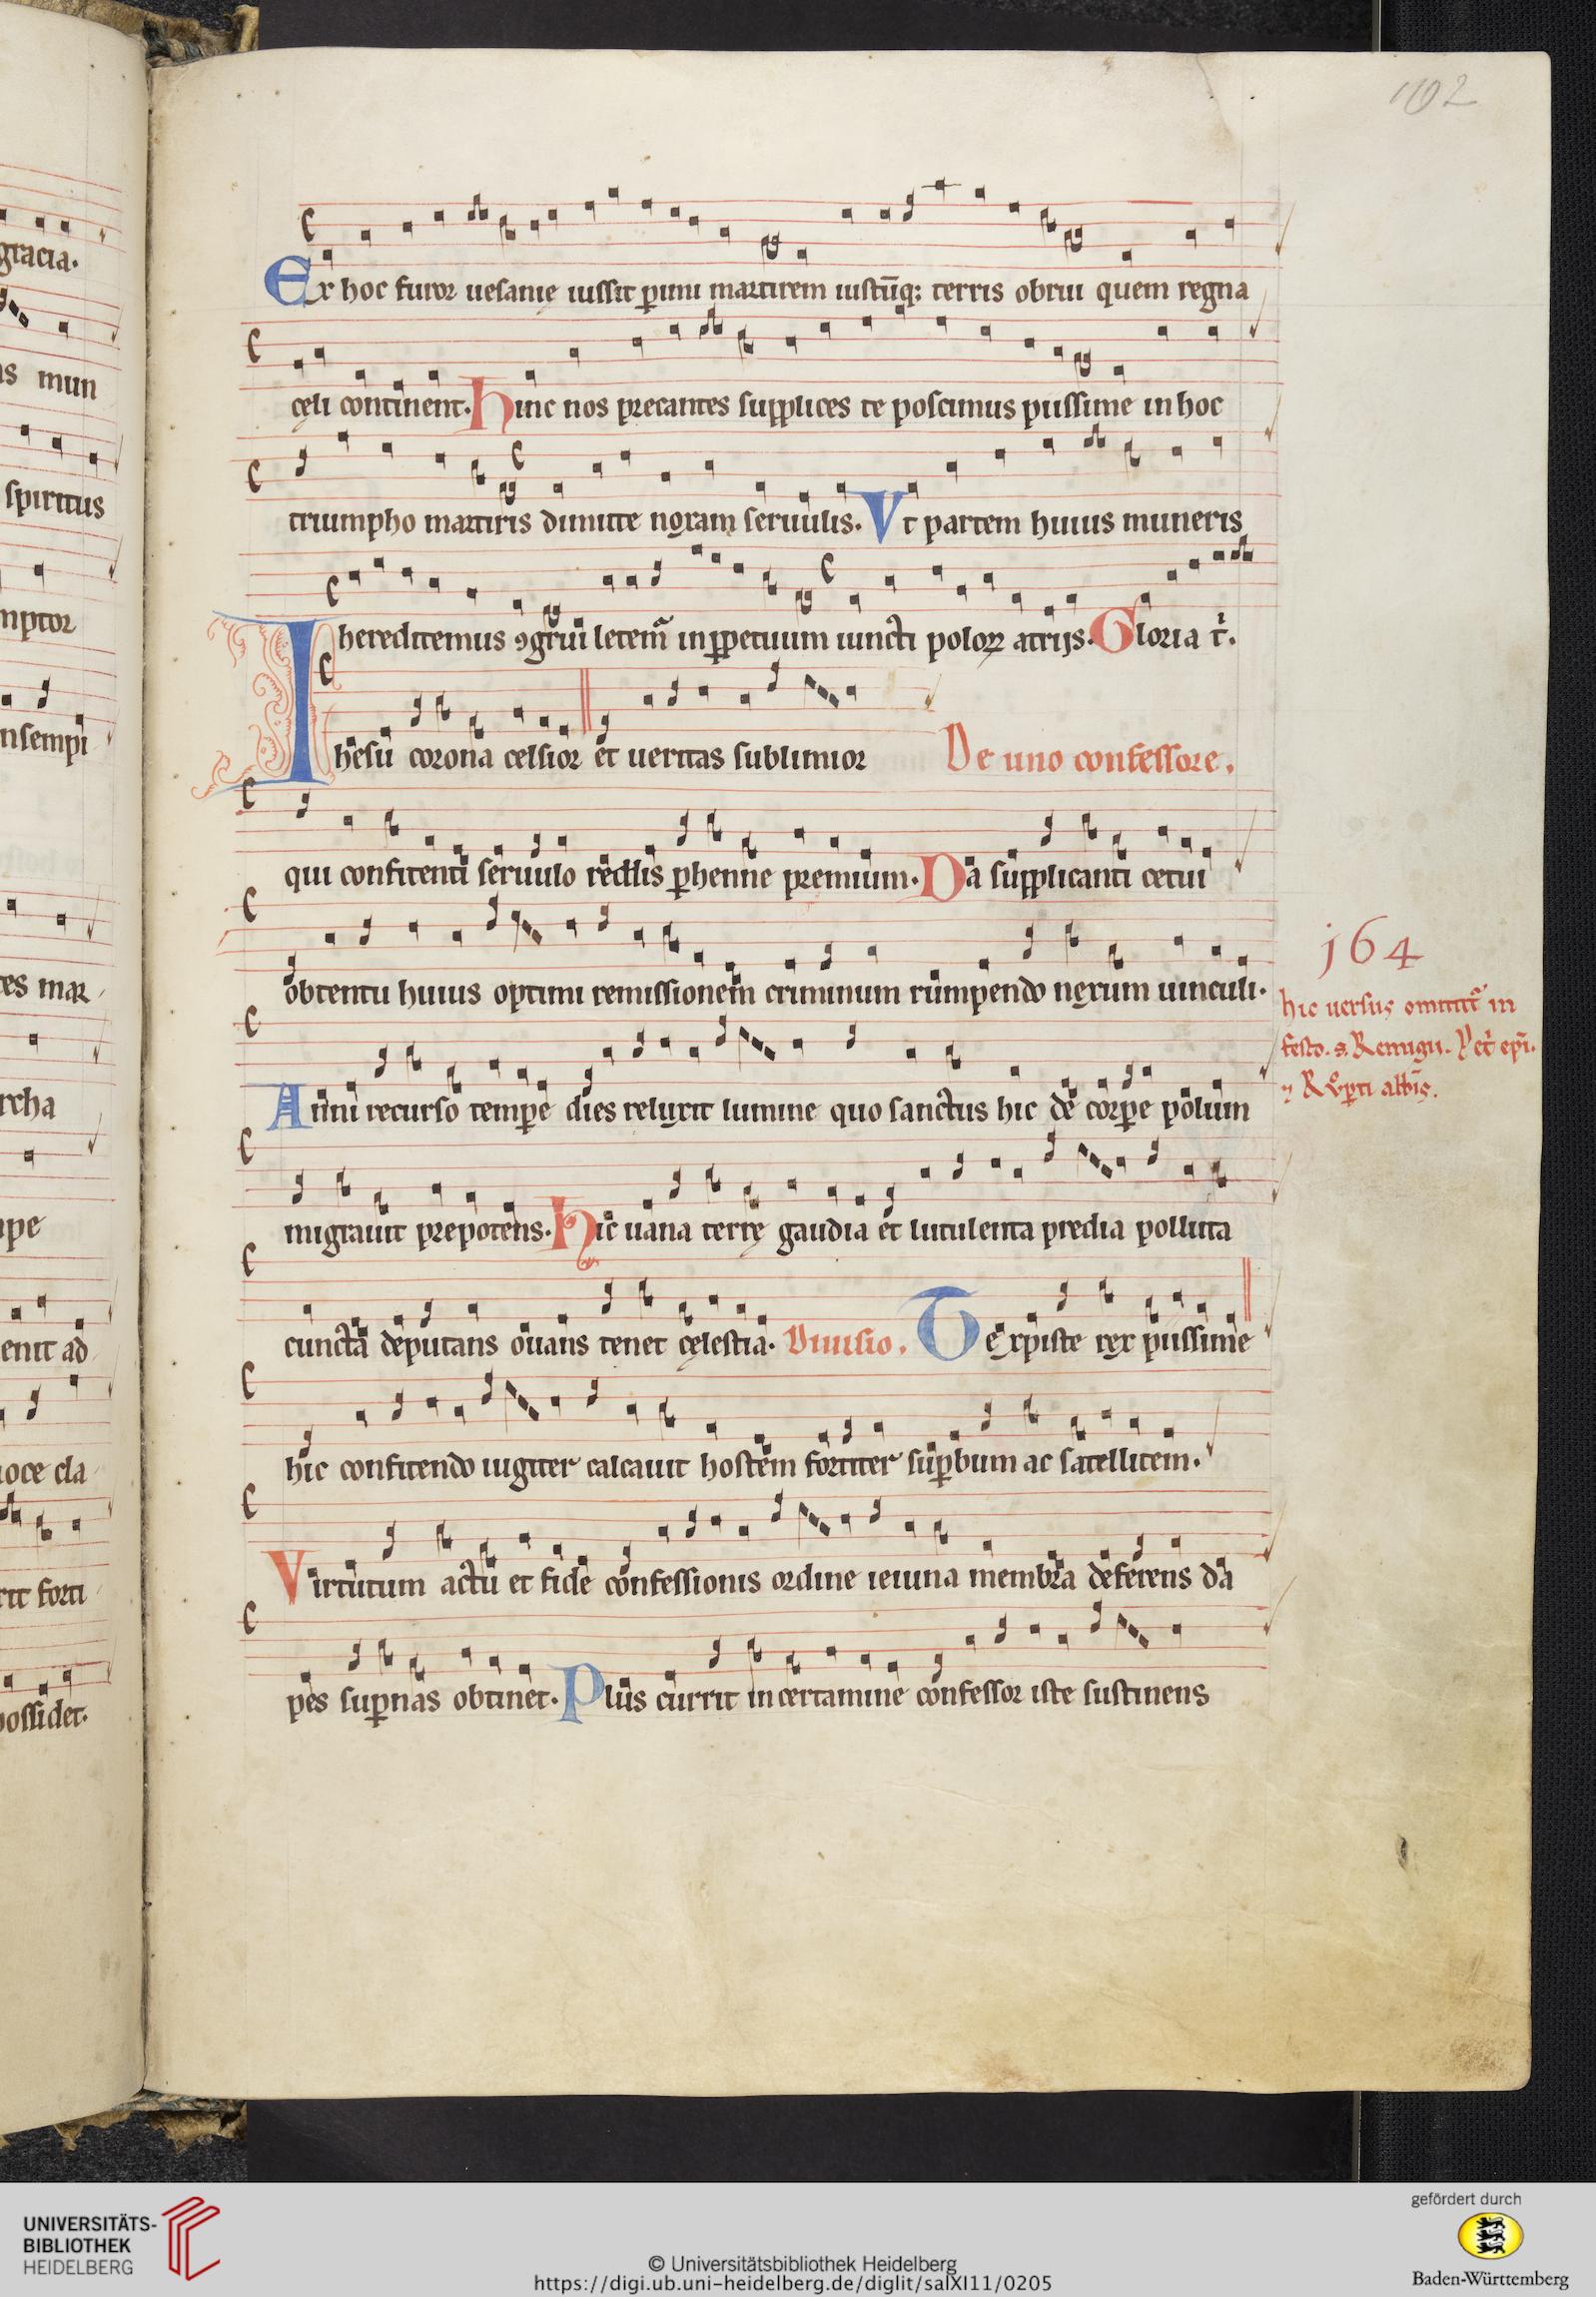 gracia.
as mun
spiritus
mptor
nsempi
tes mar
rcha
ipe
enit ad
uoce cla
rit forti
possidet.
102
Ex hoc furor uesanię iussit ꝑimi martirem iustūq; terris obrui quem regna
cęli continent. Hinc nos precantes supplices te poscimus piissime in hoc
triumpho martiris dimitte noxam seruulis. Vt partem huius muneris
hereditemus ꝯgrui letem̃ in ꝑpetuum iuncti poloꝝ atrijs. Gloria t̉.
Ihesu corona celsior et ueritas sublimior De uno confessore.
qui confitenti seruulo reddis ꝑhenne premium. Da supplicanti cetui
obtentu huius optimi remissionem criminum rumpendo nexum uinculi.
164
hic uersus omittit᷑ in
festo. s. Remigii.
Anni recurso tempe dies reluxit lumine quo sanctus hic de corpe polum
migrauit prepotens. Hic uana terrę gaudia et lutulenta predia polluta
cuncta deputans ouans tenet cęlestia. Diuisio. Te xpiste rex piissime
hic confitendo iugiter calcauit hostem fortiter suꝑbum ac satellitem.
Virtutum actu et fide confessionis ordine ieiuna membra deferens da
pes suꝑnas obtinet. Plus currit in certamine confessor iste sustinens
UNIVERSITÄTS-
BIBLIOTHEK
HEIDELBERG
© Universitätsbibliothek Heidelberg
https://digi.ub.uni-heidelberg.de/diglit/salXI11/0205
gefördert durch
Baden-Württemberg